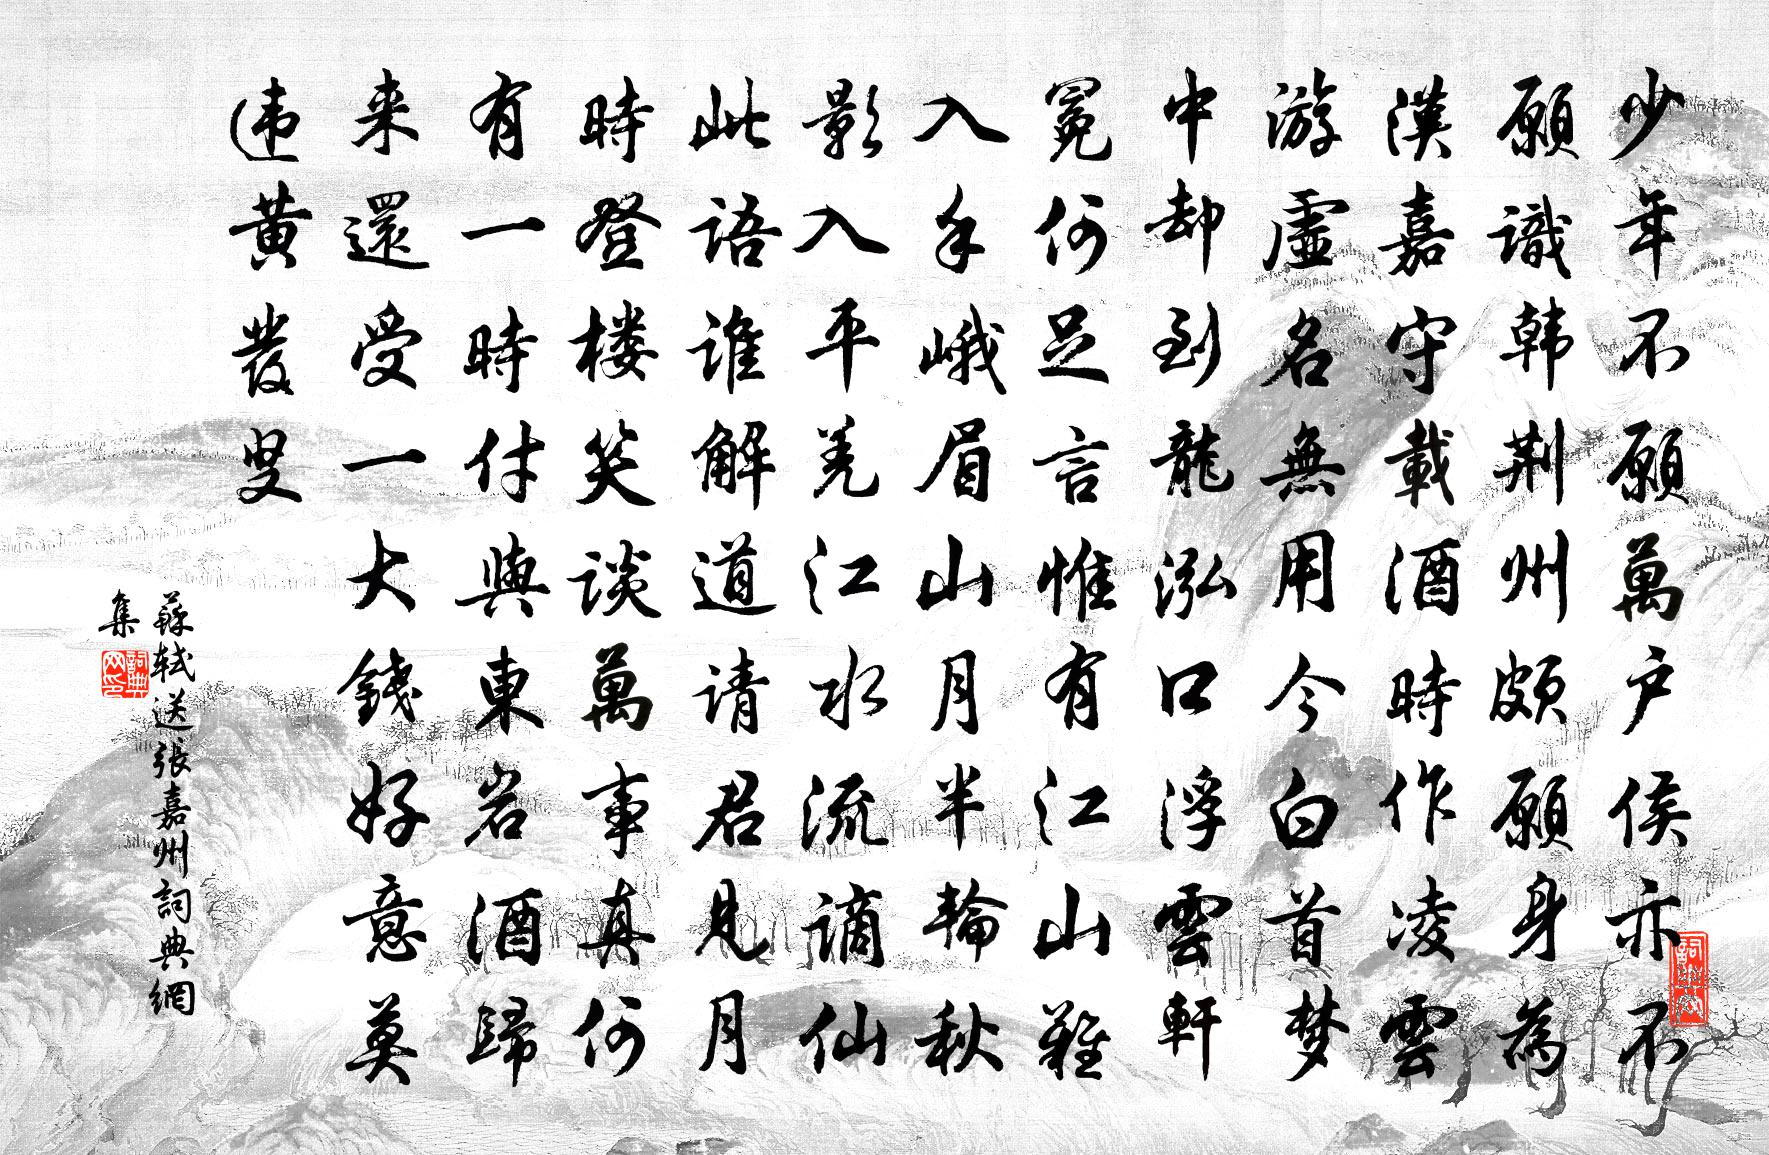 少年不願萬户侯亦不
願識韩荆州頗願身為
漢嘉守載酒時作凌雲
游虛名無用今白首梦
中却到龍泓口浮雲軒
冕何足言惟有江山難
入手峨眉山月半輪秋
影入平羌江水流謫仙
此語谁解道请君見月
時登楼笑談萬事真何
有一時付與東岩酒歸
来還受一大錢好意莫
违黄髮叟
蘇軾送張嘉州詞典網
集